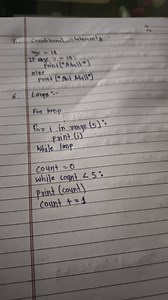 5. Conditional Statements:-
age = 18
if age >= 18:
print("Adult")
else
print("Not Adult")
6. Loops:-
For loop
for i in range(5):
print(i)
While loop
count = 0
while count < 5:
print(count)
count += 1